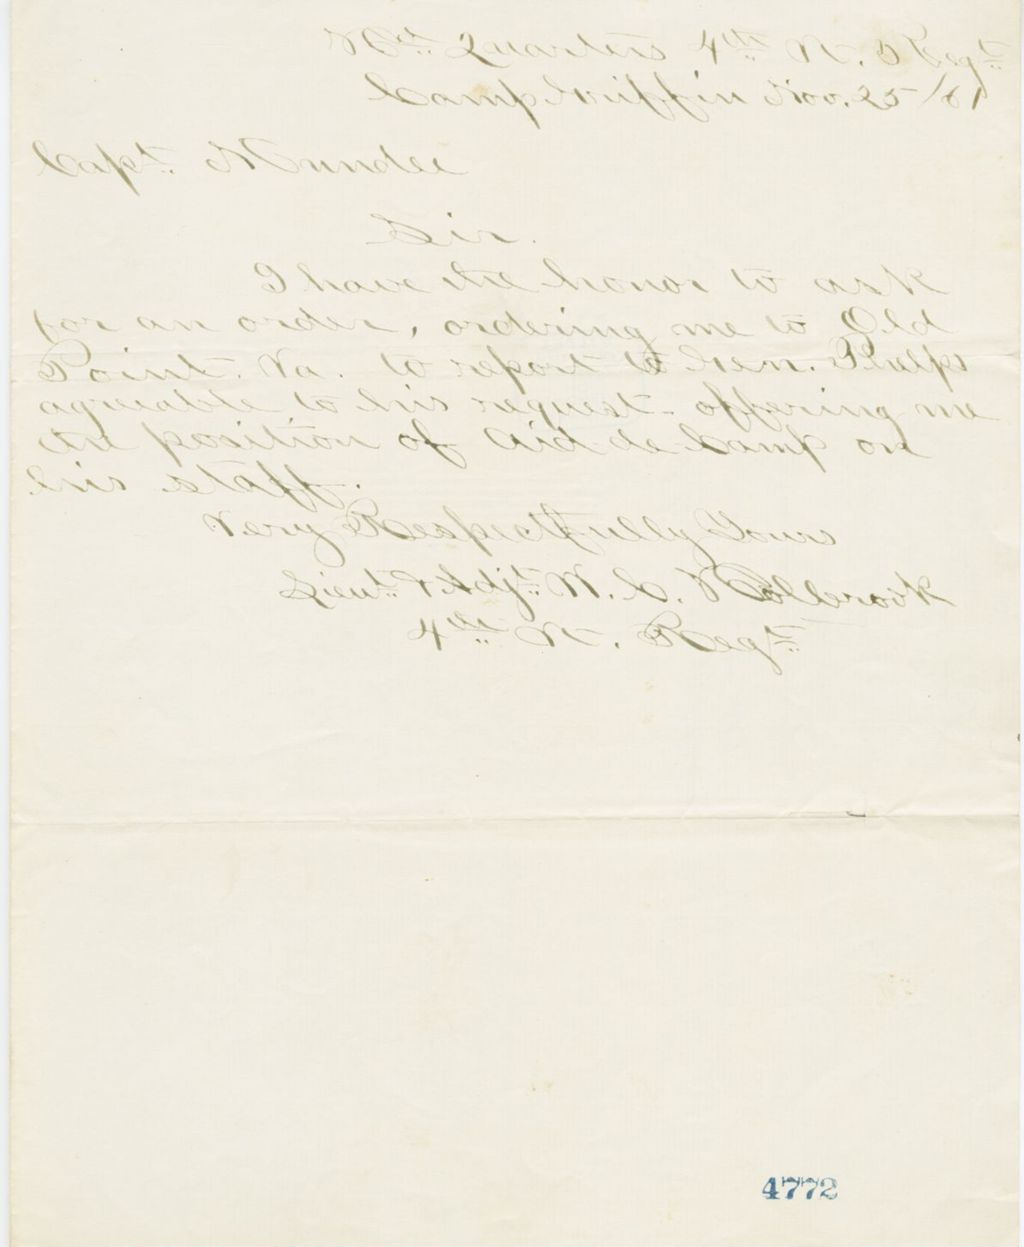 Hd. Quarters 4th Vt. Regt.
Camp Griffin Nov. 25/61
Capt. Mundee
Sir.
I have the honor to ask
for an order, ordering me to Old
Point. Va. to report to Gen. Phelps
agreeable to his request offering me
the position of Aid-de Camp on
his staff.
Very Respectfully Yours
Lieut. & Adjt. W. C. Holbrook
4th Vt. Regt.
4772